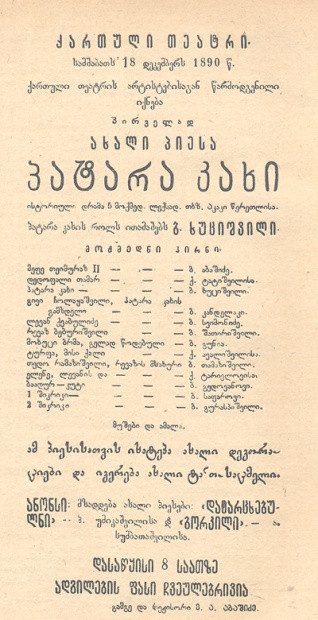 ქართული თეატრი.
სამშაბათს 18 დეკემბერს 1890 წ.
ქართული თეატრის არტისტებისაგან წარმოდგენილი
იქნება
პირველად
ახალი პიესა
პატარა კახი
ისტორიული დრამა 5 მოქმედ. ლექსად. თხზ. აკაკი წერეთლისა.
პატარა კახის როლს ითამაშებს გ. ხუციშვილი.
მოქმედნი პირნი.
მეფე თეიმურაზ II — — — ბ. აბაშიძე.
დედოფალი თამარ — — — ქ. ტატიშვილისა.
პატარა კახი — — — ბ. ხუციშვილი.
გივი ჩოლაყაშვილი, პატარა კახის
გამზდელი — — — ბ. კანდელაკი.
ლევან ქობულიძე — — — ბ. სვიმონიძე.
რევაზ ბებურიშვილი — — ბ. შათირიშვილი.
მოხუცი ბრმა, გელად წოდებული — ბ. გუნია.
ტურფა, მისი ქალი — — ქ. ავალიშვილისა.
თედო რამაზიშვილი, რევაზის მსახური ბ. თამაზიშვილი.
ელენე, ლევანის და — — — ქ. ტარიელოვისა.
ბაადურ — — — ბ. გედევანოვი.
1 შიკრიკი — — — ბ. საფაროვი.
2 შიკრიკი — — — ბ. გურასპიშვილი.
მუშები და ამალა.
ამ პიესისათვის იხატება ახალი დეკორა-
ციები და იკერება ახალი ტანთ-საცმელი.
ანონსი: მზადდება ახალი პიესები: «დატარცხებუ-
ლნი» -- პ. უმიკაშვილისა და «გორკილი» — ა.
სუმბათაშვილისა.
დასაწყისი 8 საათზე
ადგილების ფასი ჩვეულებრივია
გამგე და რეჟისორი ვ. ა. აბაშიძე.